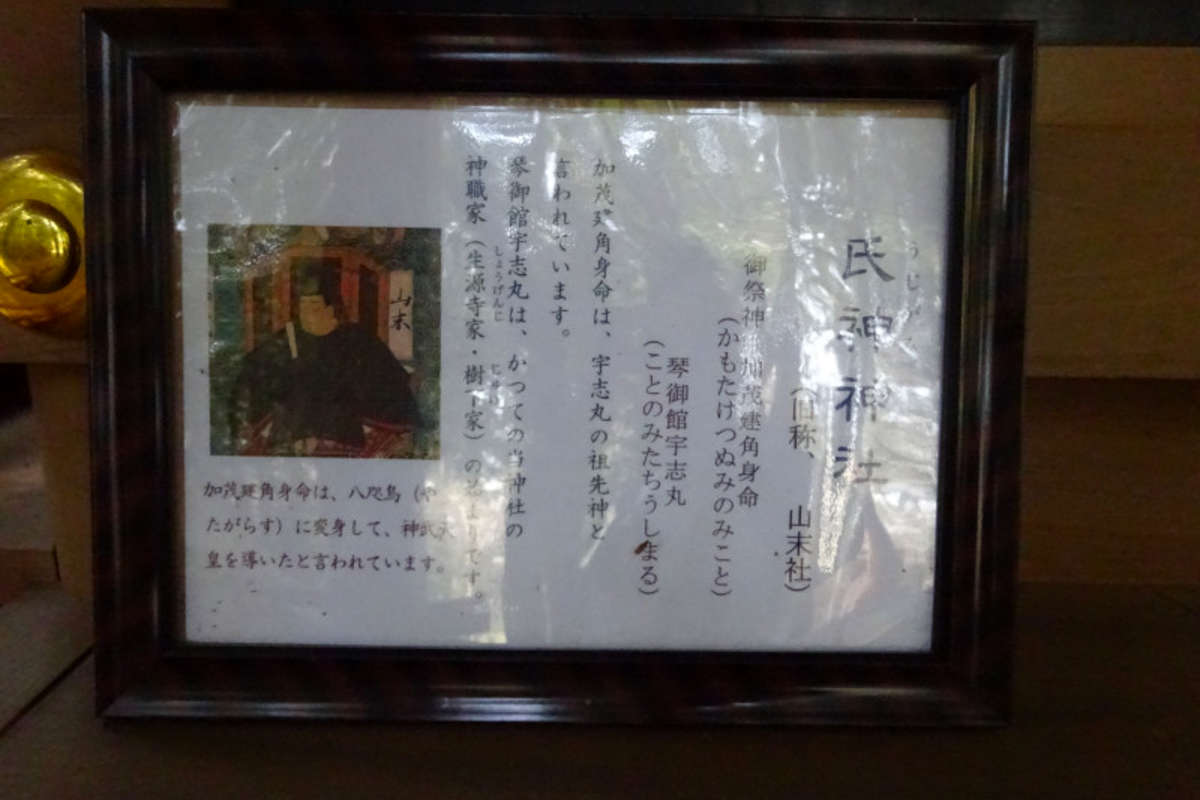 氏神神社
(旧称、 山末社)
御祭神 加茂建角身命
(かもたけつぬみのみこと)
琴御館宇志丸
(ことのみたちうしまる)
加茂建角身命は、宇志丸の祖先神と
言われています。
琴御館宇志丸は、かつての当神社の
神職家(生源寺家・樹下家)の
しょうげんじ
です。
山末
加茂建角身命は、八咫烏(や
たがらす)に変身して、神武天
皇を導いたと言われています。